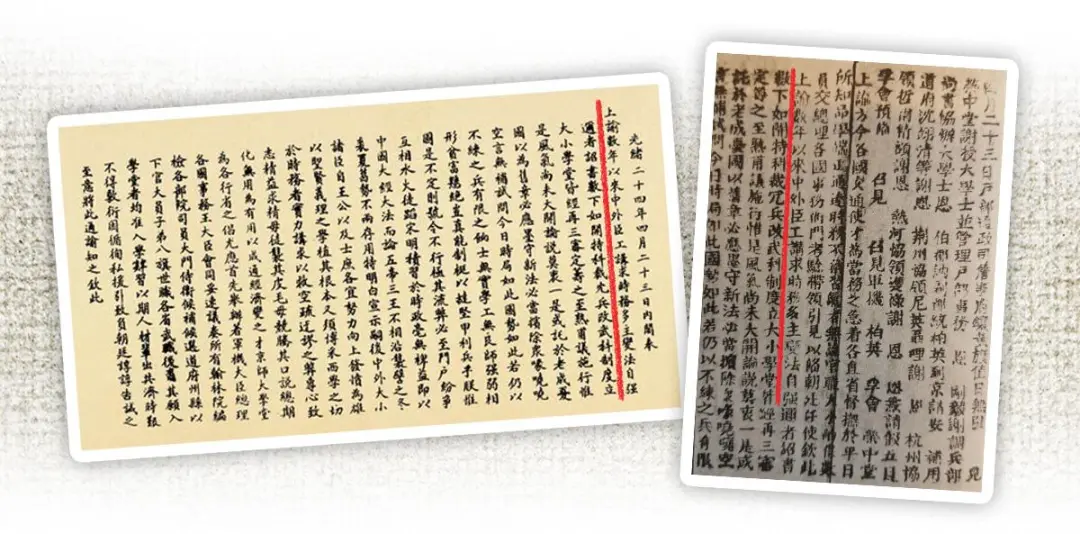 光緒二十四年四月二十三日內閣奉
上諭數年以來中外臣工講求時務多主變法自强
邇者詔書數下如開特科裁冗兵改武科制度立
大小學堂皆經再三審定籌之至熟甫議施行惟
是風氣尚未大開論說莫衷一是或託於老成憂
國以為舊章必應墨守新法必當擯除衆喙嘵嘵
空言無補試問今日時局如此國勢如此若仍以
不練之兵有限之餉士無實學工無良師强弱相
形貧富懸絕豈真能制梃以撻堅甲利兵乎朕惟
國是不定則號令不行極其流弊必至門戶紛爭
互相水火徒蹈宋明積習於時政毫無裨益即以
中國大經大法而論五帝三王不相沿襲譬之冬
裘夏葛勢不兩存用特明白宣示嗣後中外大小
諸臣自王公以及士庶各宜努力向上發憤為雄
以聖賢義理之學植其根本又須博采西學之切
於時務者實力講求以救空疏迂謬之弊專心致
志精益求精毋徒襲其皮毛毋競騰其口說總期
化無用為有用以成通經濟變之才京師大學堂
為各行省之倡尤應首先舉辦著軍機大臣總理
各國事務王大臣會同妥速議奏所有翰林院編
檢各部院司員大門侍衛候補候選道府州縣以
下官大員子弟八旗世職各省武職後裔其願入
學堂者均准入學肄習以期人材輩出共濟時艱
不得敷衍因循徇私援引致負朝廷諄諄告誡之
至意將此通諭知之欽此
月二十三日戶部通政司詹事府
中堂謝授大學士並管理戶部事務 恩 剛毅謝調兵部
尚書協辦大學士恩 副都統柏英到京請安 補用
道府沈翊清等謝恩 荊州協領 恩 杭州協
領哲 謝恩 熱河協領 謝 恩 請假五日
召見軍機 柏英 李會 榮中堂
上諭方今各國交通使才為當務之急著各直省督撫於平日
所知品學端正通達時務不染習氣者無論官職大小
員交總理各國事務衙門考驗帶領引見以備朝廷任使欽此
上諭數年以來中外臣工講求時務多主變法自强邇者詔書
數下如開特科裁冗兵改武科制度立大小學堂皆經再三審
定籌之至熟甫議施行惟是風氣尚未大開論說莫衷一是或
託於老成憂國以為舊章必應墨守新法必當擯除衆喙嘵嘵空
言無補試問今日時局如此國勢如此若仍以不練之兵有限